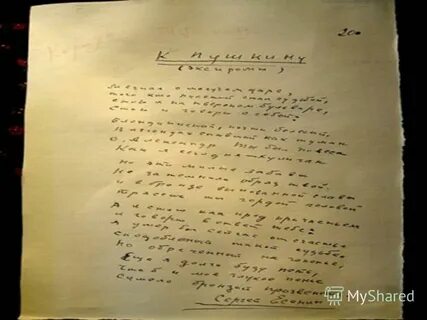 200
К ПУШКИНУ
(экспромт)
Мечтая о могучем даре
того кто русской стал судьбой,
стою я на тверском бульваре,
Стою и говорю с собой.
Блондинистый, почти белесый,
В легендах ставший как туман
О, Александр ты был повеса
Как я сегодня хулиган
Но эти милые забавы
Не затемнили образ твой
и в бронзе выкованной славы
Трясешь ты гордой головой
А я стою как пред причастьем
и говорю в ответ тебе
Я умер бы сейчас от счастья
Сподобленный такой судьбе
Но обреченный на гоненье
Еще я долго буду петь
Чтоб и мое глухое пенье
Сумело бронзой прозвенеть
Сергей Есенин
MyShared